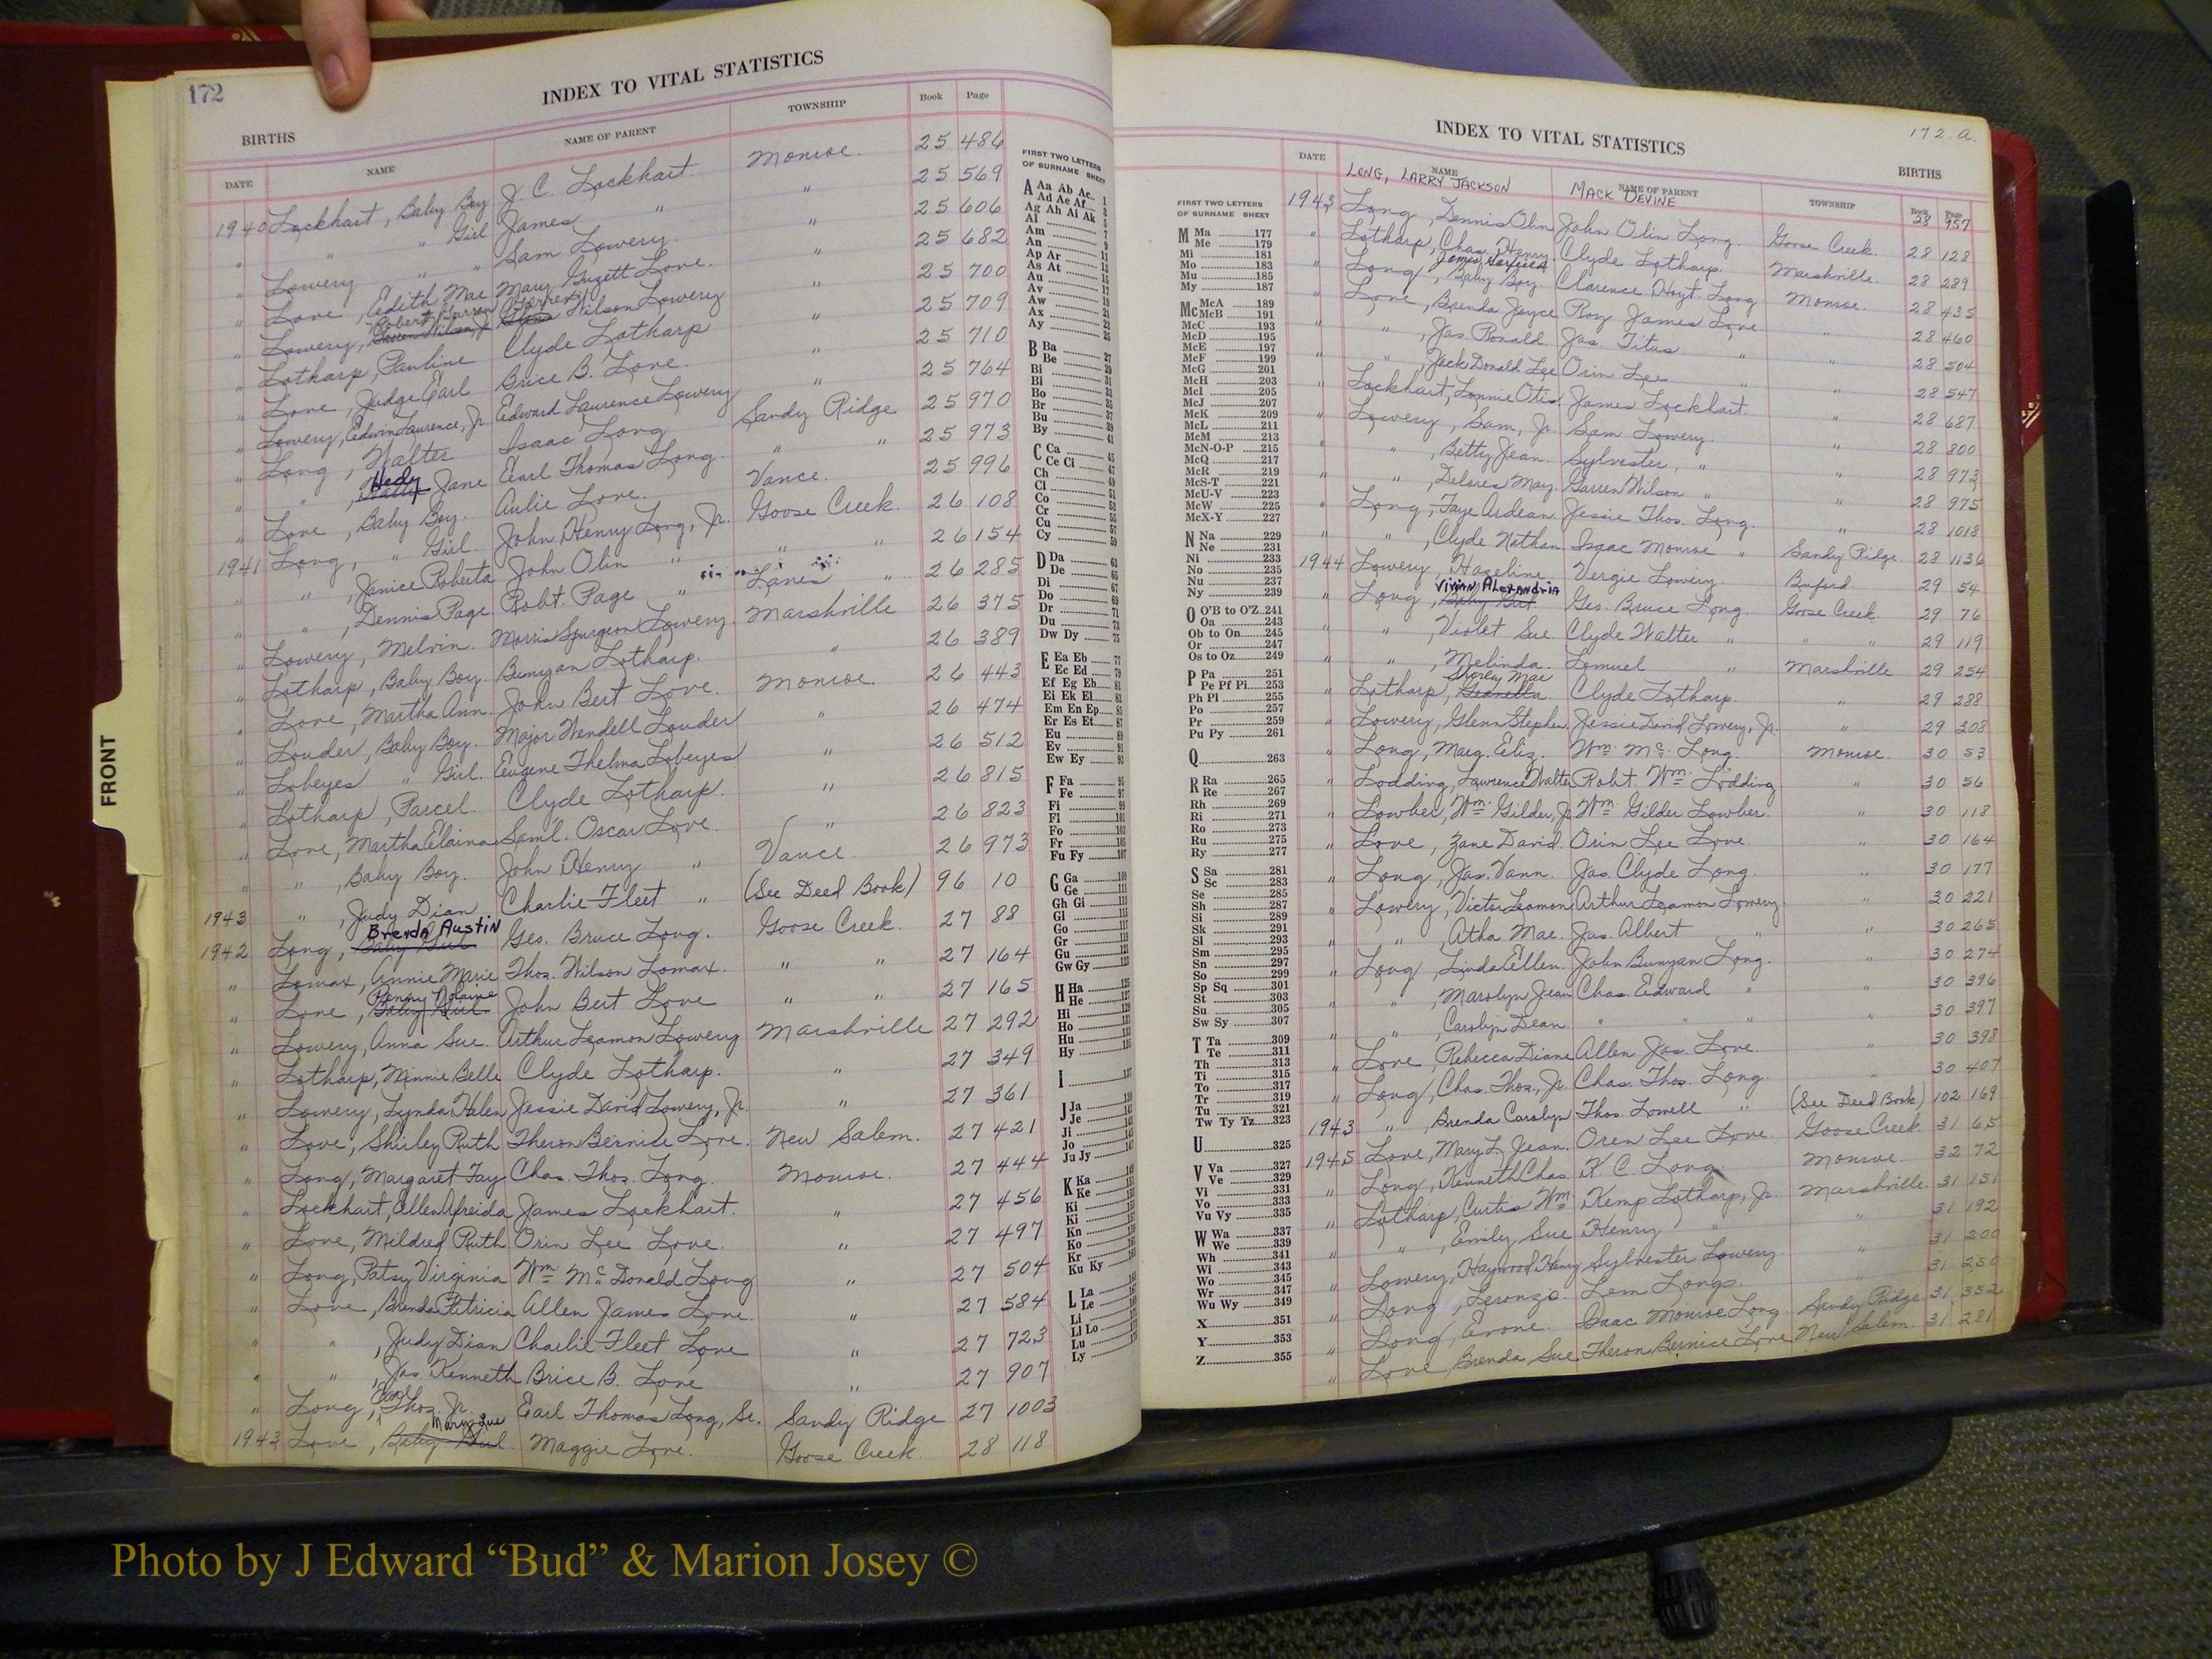 172
INDEX TO VITAL STATISTICS
BIRTHS
DATE NAME NAME OF PARENT TOWNSHIP Book Page
1940 Lockhart, Baby Boy J. C. Lockhart Monroe. 25 486
" " " Girl James " " 25 569
" Lowery " " Sam Lowery. " 25 606
" Love, Edith Mae Mary Love. " 25 682
" Lowery, Robert Wilson Lowery " 25 700
" Lotharp, Pauline Clyde Lotharp " 25 709
" Love, Judge Earl Brice B. Love. " 25 710
" Lowery, Edwin Laurence, Jr. Edward Laurence Lowery " 25 764
" Long, Walter Isaac Long Sandy Ridge 25 970
" " , Hedy Jane Earl Thomas Long. " " 25 973
" Love, Baby Boy. Aulie Love. Vance. 25 996
1941 Long, " Girl. John Henry Long, Jr. Goose Creek. 26 108
" " , Janice Roberta John Olin " " " 26 154
" " , Dennis Page. Robt. Page " Lanes " 26 285
" Lowery, Melvin. Morris Spurgeon Lowery. Marshville 26 375
" Lotharp, Baby Boy. Bunyan Lotharp. " 26 389
" Love, Martha Ann. John Bert Love. Monroe. 26 443
" Louder, Baby Boy. Major Wendell Louder " 26 474
" Lobeyes " Girl. Eugene Thelma Lobeyes " 26 512
" Lotharp, Parcel. Clyde Lotharp. " 26 815
" Love, Martha Elaina Saml. Oscar Love. " 26 823
" " , Baby Boy. John Henry " Vance 26 973
1943 " , Judy Dian Charlie Fleet " (See Deed Book) 96 10
1942 Long, Baby Girl Brenda Austin Geo. Bruce Long. Goose Creek. 27 88
" Lomax, Annie Marie Thos. Wilson Lomax. " " 27 164
" Love, Baby Girl. John Bert Love " " 27 165
" Lowery, Anna Sue. Arthur Leamon Lowery Marshville 27 292
" Lotharp, Minnie Belle Clyde Lotharp. " 27 349
" Lowery, Lynda Helen Jessie David Lowery, Jr. " 27 361
" Love, Shirley Ruth Theron Bernice Love. New Salem. 27 421
" Long, Margaret Fay Chas. Thos. Long. Monroe. 27 444
" Lockhart, Ellen Afreida James Lockhart. " 27 456
" Love, Mildred Ruth Orin Lee Love. " 27 497
" Long, Patsy Virginia Wm. Mc. Donald Long " 27 504
" Love, Brenda Patricia Allen James Love. " 27 584
" " , Judy Dian Charlie Fleet Love " 27 723
" " , Jas. Kenneth Brice B. Love " 27 907
" Long, Earl Thos. Jr. Earl Thomas Long, Sr. Sandy Ridge 27 1003
1943 Love, Baby Girl. Mary Sue Maggie Love. Goose Creek. 28 118
FIRST TWO LETTERS
OF SURNAME SHEET
A Aa Ab Ac
Ad Ae Af
Ag Ah Ai Ak
Al
Am
An
Ap Ar
As At
Au
Av
Aw
Ax
Ay
B Ba 27
Be 29
Bi
Bl
Bo
Br
Bu
By 41
C Ca 45
Ce Ci 47
Ch 49
Cl 51
Co 53
Cr 55
Cu 57
Cy 59
D Da 61
De 63
Di 65
Do 67
Dr 69
Du 71
Dw Dy 75
E Ea Eb 77
Ec Ed 79
Ef Eg Eh 81
Ei Ek El 83
Em En Ep 85
Er Es Et 87
Eu 89
Ev 91
Ew Ey 93
F Fa 95
Fe 97
Fi 99
Fl 101
Fo 103
Fr 105
Fu Fy 107
G Ga 109
Ge 111
Gh Gi 113
Gl 115
Go 117
Gr 119
Gu 121
Gw Gy 123
H Ha 125
He 127
Hi 129
Ho 131
Hu 133
Hy 135
I 137
J Ja 139
Je 141
Ji 143
Jo 145
Ju Jy 147
K Ka 149
Ke
Ki
Kn
Ko
Kr
Ku Ky
L La
Le
Li
Ll Lo
Lu
Ly
172.a.
INDEX TO VITAL STATISTICS
BIRTHS
DATE NAME NAME OF PARENT TOWNSHIP Book Page
LONG, LARRY JACKSON MACK DEVINE 28 957
1943 Long, Dennis Olin John Olin Long. Goose Creek. 28 128
" Lotharp, Chas. Henry Clyde Lotharp. Marshville. 28 289
" Long, Baby Boy. Clarence Hoyt Long Monroe. 28 435
" Love, Brenda Joyce Roy James Love. " 28 460
" " , Jas. Ronald. Jas. Titus " " 28 504
" " , Jack Donald Lee Orin Lee " " 28 547
" Lockhart, Lonnie Otis. James Lockhart. " 28 687
" Lowery, Sam, Jr. Sam Lowery. " 28 800
" " , Betty Jean. Sylvester, " " 28 973
" " , Delores May. Garren Wilson " " 28 975
" Long, Faye Ardean. Jessie Thos. Long. " 28 1018
" " , Clyde Nathan. Isaac Monroe " Sandy Ridge. 28 1136
1944 Lowery, Hazeline. Vergie Lowery. Buford 29 54
" Long, Baby Girl. Vivian Alexandria Geo. Bruce Long. Goose Creek. 29 76
" " , Violet Sue Clyde Walter " " " 29 119
" " , Melinda. Lemuel " Marshville 29 254
" Lotharp, Shirley Mae Clyde Lotharp. " 29 288
" Lowery, Glenn Stephen Jessie David Lowery, Jr. " 29 308
" Long, Marg. Eliz. Wm. Mc. Long. Monroe. 30 53
" Lodding, Lawrence Walter Robt. Wm. Lodding " 30 56
" Lowber, Wm. Gilder, Jr. Wm. Gilder Lowber. " 30 118
" Love, Zane David. Orin Lee Love " 30 164
" Long, Jas. Vann. Jas. Clyde Long. " 30 177
" Lowery, Victor Leamon Arthur Leamon Lowery " 30 221
" " , Atha Mae. Jas. Albert " " 30 265
" Long, Linda Ellen. John Bunyan Long. " 30 274
" " , Marolyn Jean Chas. Edward " " 30 396
" " , Carolyn Dean. " " " " 30 397
" Love, Rebecca Diane Allen Jas. Love. " 30 398
" Long, Chas. Thos., Jr. Chas. Thos. Long. " 30 407
1943 " , Brenda Carolyn Thos. Lowell " (See Deed Book) 102 169
1945 Love, Mary L. Jean. Oren Lee Love. Goose Creek 31 65
" Long, Kenneth Chas. K. C. Long. Monroe 32 72
" Lotharp, Curtis Wm. Kemp Lotharp, Jr. Marshville 31 151
" " , Emily Sue Henry " " 31 192
" Lowery, Haywood Henry Sylvester Lowery. " 31 200
" Long, Leronzo. Lem Long. " 31 250
" Long, Erone. Isaac Monroe Long. Sandy Ridge. 31 352
" Love, Brenda Sue. Theron Bernice Love New Salem. 31 281
FIRST TWO LETTERS
OF SURNAME SHEET
M Ma 177
Me 179
Mi 181
Mo 183
Mu 185
My 187
Mc McA 189
McB 191
McC 193
McD 195
McE 197
McF 199
McG 201
McH 203
McI 205
McJ 207
McK 209
McL 211
McM 213
McN-O-P 215
McQ 217
McR 219
McS-T 221
McU-V 223
McW 225
McX-Y 227
N Na 229
Ne 231
Ni 233
No 235
Nu 237
Ny 239
O O'B to O'Z 241
Oa 243
Ob to On 245
Or 247
Os to Oz 249
P Pa 251
Pe Pf Pi 253
Ph Pl 255
Po 257
Pr 259
Pu Py 261
Q 263
R Ra 265
Re 267
Rh 269
Ri 271
Ro 273
Ru 275
Ry 277
S Sa 281
Sc 283
Se 285
Sh 287
Si 289
Sk 291
Sl 293
Sm 295
Sn 297
So 299
Sp Sq 301
St 303
Su 305
Sw Sy 307
T Ta 309
Te 311
Th 313
Ti 315
To 317
Tr 319
Tu 321
Tw Ty Tz 323
U 325
V Va 327
Ve 329
Vi 331
Vo 333
Vu Vy 335
W Wa 337
We 339
Wh 341
Wi 343
Wo 345
Wr 347
Wu Wy 349
X 351
Y 353
Z 355
FRONT
Photo by J Edward “Bud” & Marion Josey ©